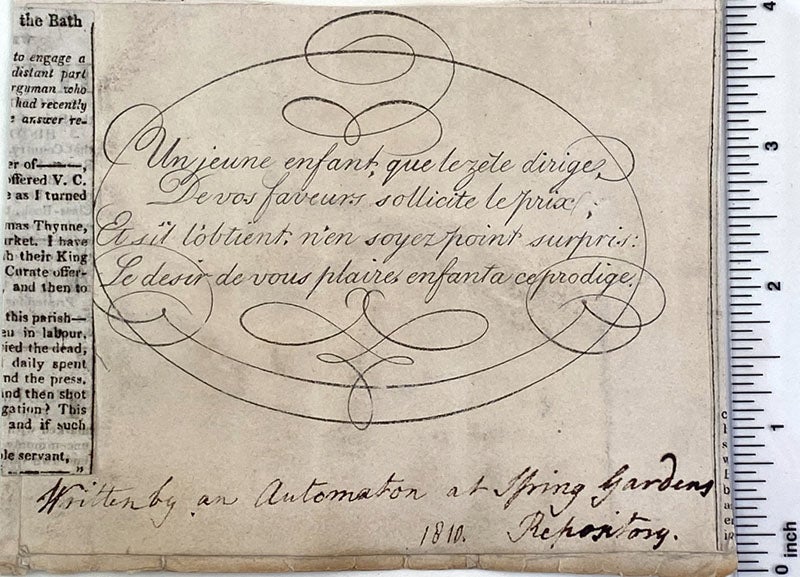 the Bath
to engage a
distant part
rgyman who
had recently
answer re-
er of——,
offered V. C.
as I turned
mas Thynne,
rket. I have
h their King
Curate offer-
, and then to
this parish—
eu in labour,
ied the dead,
daily spent
nd the press,
and then shot
gation? This
and if such
le servant,
Un jeune enfant, que le zéte dirige,
De vos faveurs sollicite le prix;
Et s'il l'obtient, n'en soyez point surpris:
Le desir de vous plaire, enfanta ce prodige.
Written by an Automaton at Spring Gardens
1810. Repository.
4
3
2
1
0 inch